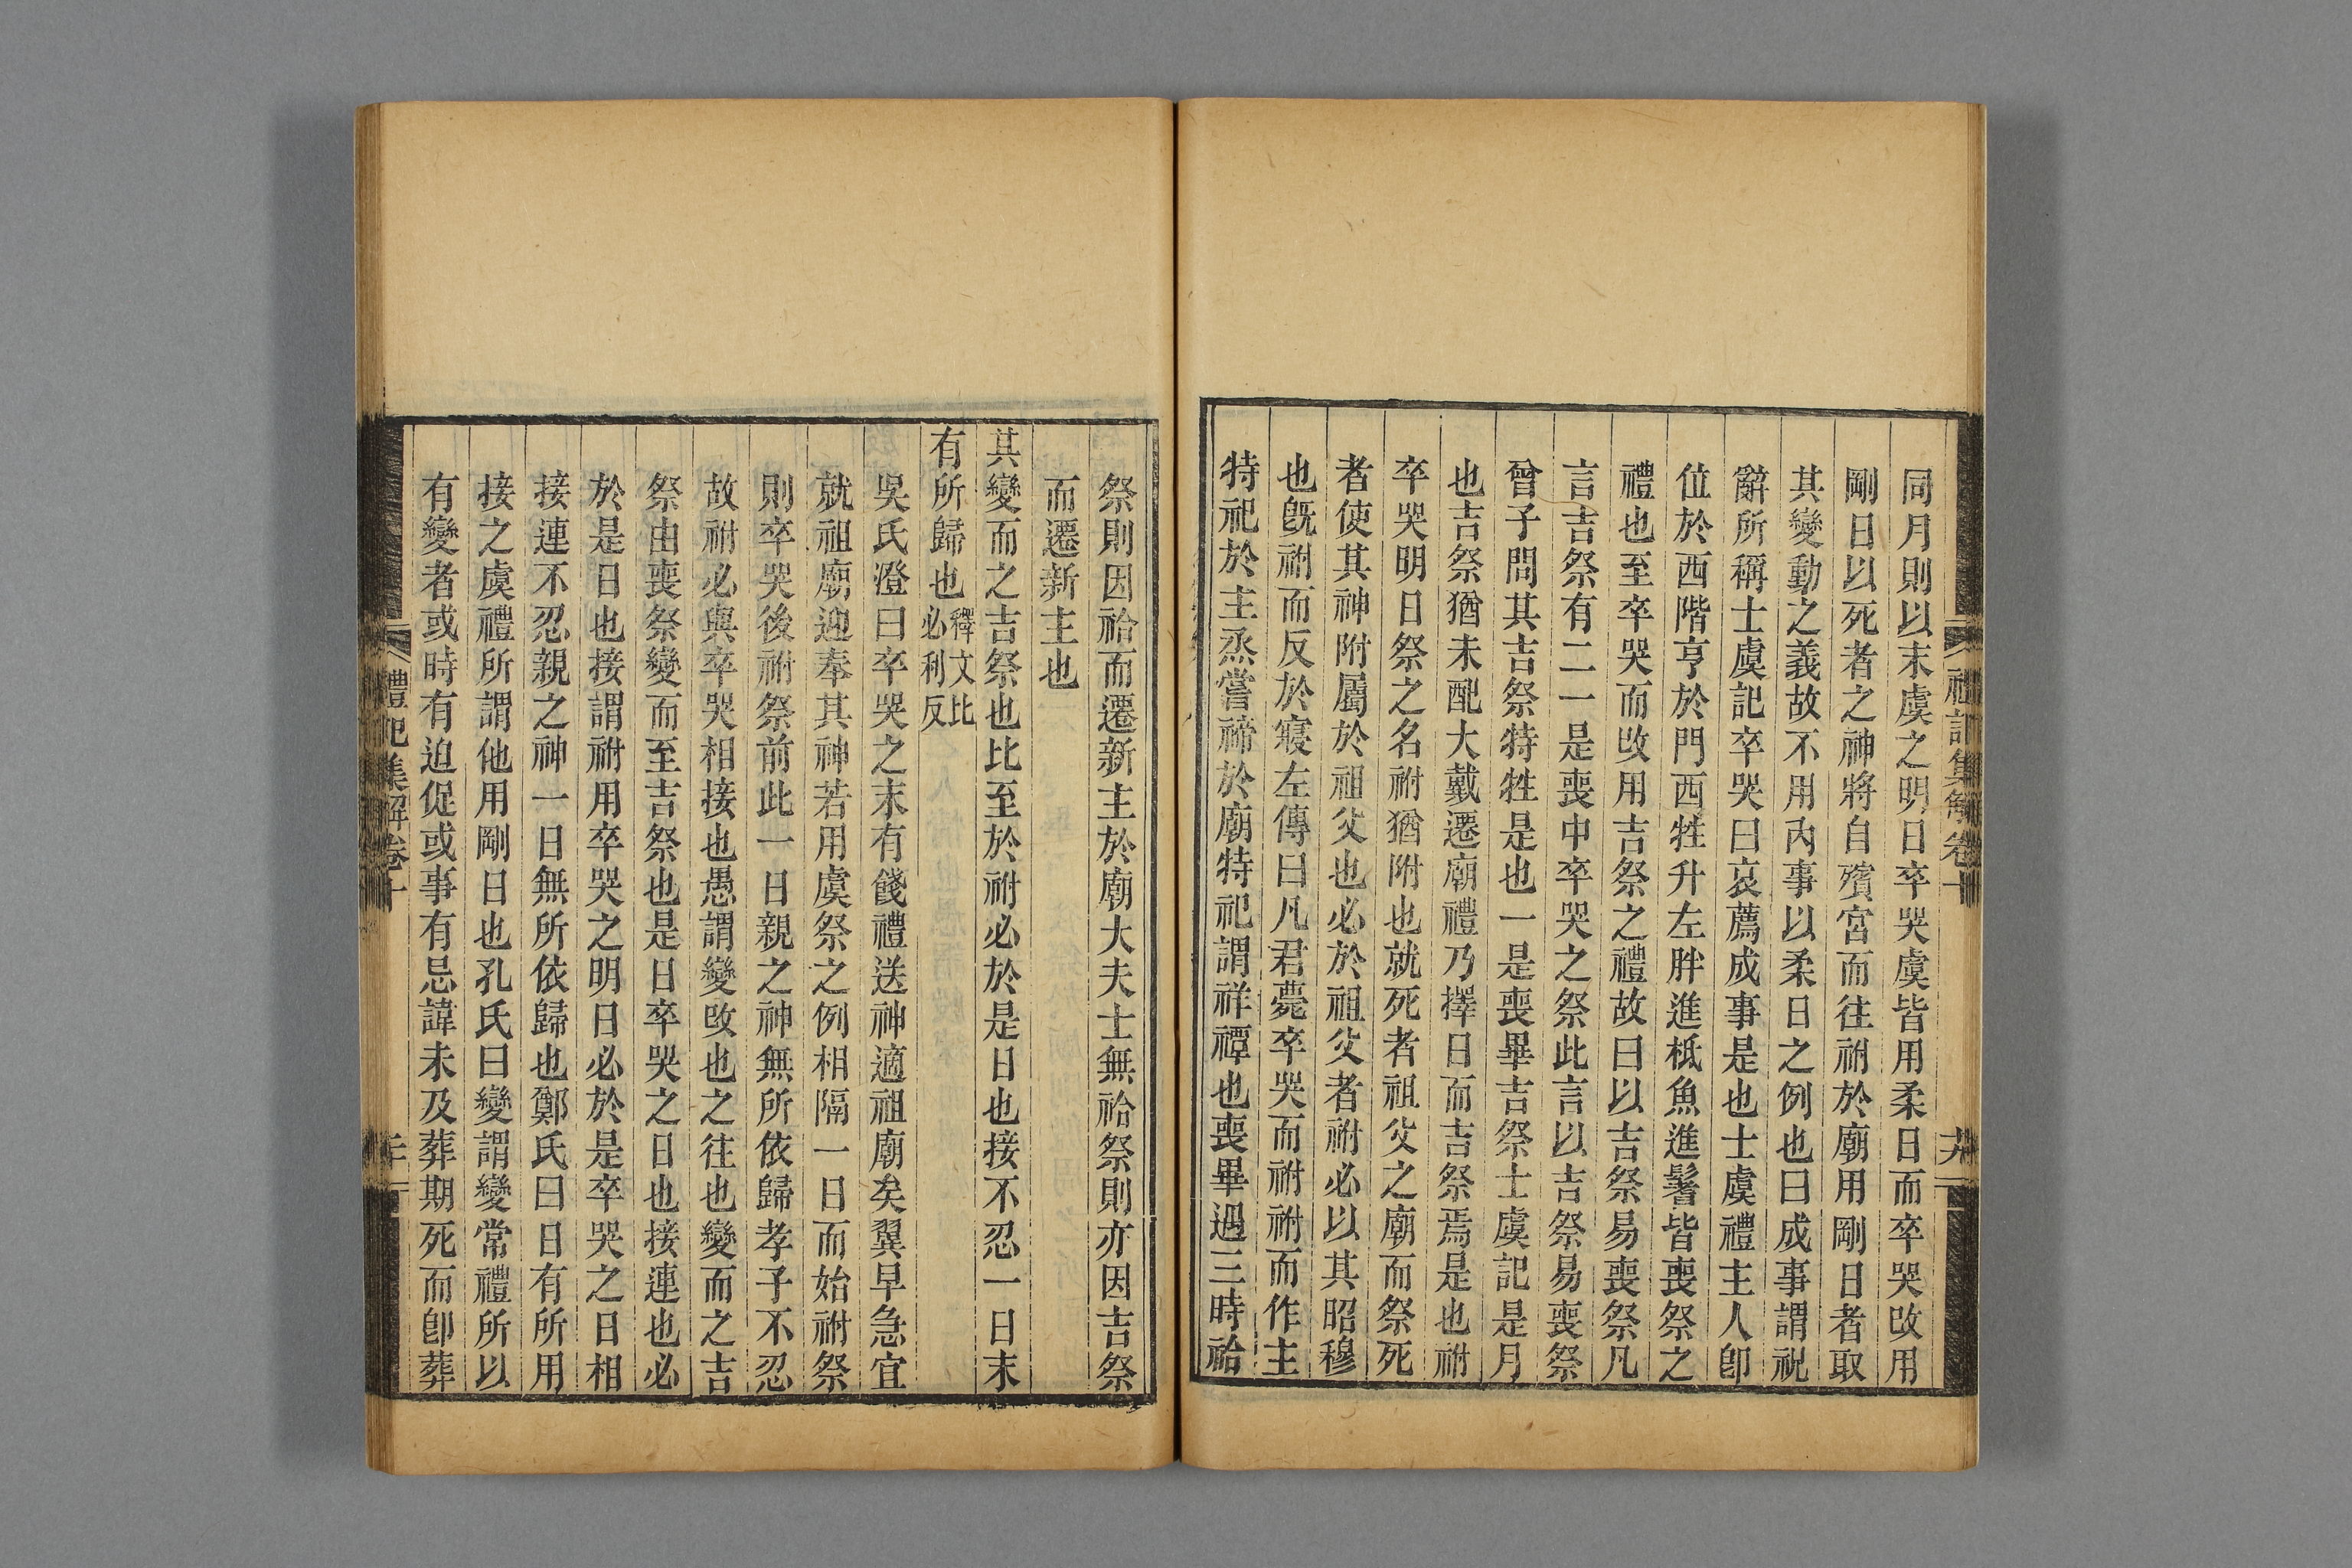 禮記集解卷十
卄
同月則以末虞之明日卒哭虞皆用柔日而卒哭改用
剛日以死者之神將自殯宮而往祔於廟用剛日者取
其變動之義故不用內事以柔日之例也曰成事謂祝
辭所稱士虞記卒哭曰哀薦成事是也士虞禮主人卽
位於西階亨於門西牲升左胖進柢魚進鬐皆喪祭之
禮也至卒哭而改用吉祭之禮故曰以吉祭易喪祭凡
言吉祭有二一是喪中卒哭之祭此言以吉祭易喪祭
曾子問其吉祭特牲是也一是喪畢吉祭士虞記是月
也吉祭猶未配大戴遷廟禮乃擇日而吉祭焉是也祔
卒哭明日祭之名祔猶附也就死者祖父之廟而祭死
者使其神附屬於祖父也必於祖父者祔必以其昭穆
也旣祔而反於寢左傳曰凡君薨卒哭而祔祔而作主
特祀於主烝嘗禘於廟特祀謂祥禫也喪畢過三時祫
祭則因祫而遷新主於廟大夫士無祫祭則亦因吉祭
而遷新主也
其變而之吉祭也比至於祔必於是日也接不忍一日末
有所歸也釋文比必利反
吳氏澄曰卒哭之末有餞禮送神適祖廟矣翼早急宜
就祖廟迎奉其神若用虞祭之例相隔一日而始祔祭
則卒哭後祔祭前此一日親之神無所依歸孝子不忍
故祔必與卒哭相接也愚謂變改也之往也變而之吉
祭由喪祭變而至吉祭也是日卒哭之日也接連也必
於是日也接謂祔用卒哭之明日必於是卒哭之日相
接連不忍親之神一日無所依歸也鄭氏曰日有所用
接之虞禮所謂他用剛日也孔氏曰變謂變常禮所以
有變者或時有迫促或事有忌諱未及葬期死而卽葬
禮記集解卷十